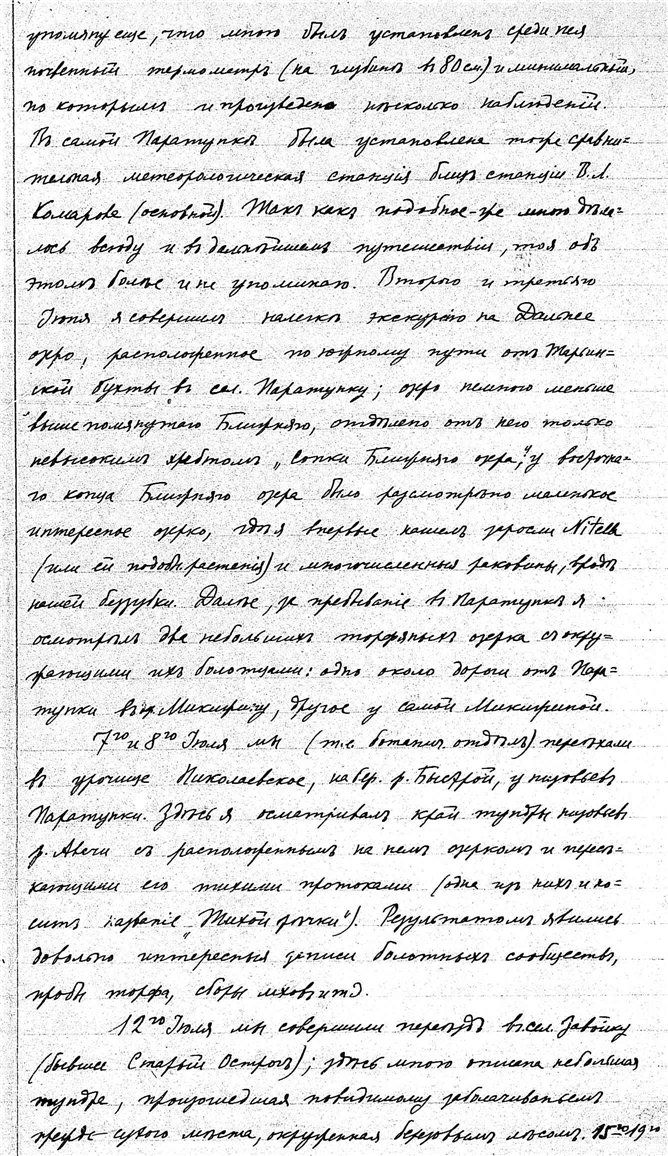 упомяну еще, что мною былъ установленъ среди нея
почвенный термометръ (на глубинѣ въ 80 см) и минимальный,
по которымъ и произведено нѣсколько наблюденій.
Въ самой Паратункѣ была установлена тоже сравни=
тельная метеорологическая станція близъ станціи В. Л.
Комарова (основной). Такъ какъ подобное-же мною дѣла=
лось всюду и въ дальнѣйшемъ путешествіи, то я объ
этомъ болѣе и не упоминаю. Второго и третьяго
Іюля я совершилъ налегкѣ экскурсію на Дальнее
озеро, расположенное по южному пути отъ Тарьин=
ской бухты въ сел. Паратунку; озеро немного меньше
вышепомянутаго Ближняго, отдѣлено отъ него только
невысокимъ хребтомъ "Сопки Ближняго озера", у восточна=
го конца Ближняго озера было разсмотрѣно маленькое
интересное озерко, гдѣ я впервые нашелъ заросли Nitella
(или ей подобн. растенія) и многочисленныя раковины, вродѣ
нашей беззубки. Далѣе, за пребываніе въ Паратункѣ я
осмотрѣлъ два небольшихъ торфяныхъ озерка съ окру=
жающими ихъ болотцами: одно около дороги отъ Пара=
тунки въ Микижину, другое у самой Микижиной.
7го и 8го Іюля мы (т.е. ботанич. отдѣлъ) переѣхали
въ урочище Николаевское, на бер. р. Быстрой, у низовьевъ
Паратунки. Здѣсь я осматривалъ край тундры низовьевъ
р. Авачи съ расположеннымъ на немъ озеркомъ и пересѣ=
кающими его тихими протоками (одна изъ нихъ и но=
ситъ названіе "Тихой рѣчки"). Результатомъ явились
довольно интересныя записи болотныхъ сообществъ,
пробы торфа, сборы мховъ и т.д.
12го Іюля мы совершили переѣздъ въ сел. Завойку
(бывшее Старый Острогъ); здѣсь мною описана небольшая
тундра, происшедшая повидимому заболачиваньемъ
прежде сухого мѣста, окруженная березовымъ лѣсомъ. 15го 19го